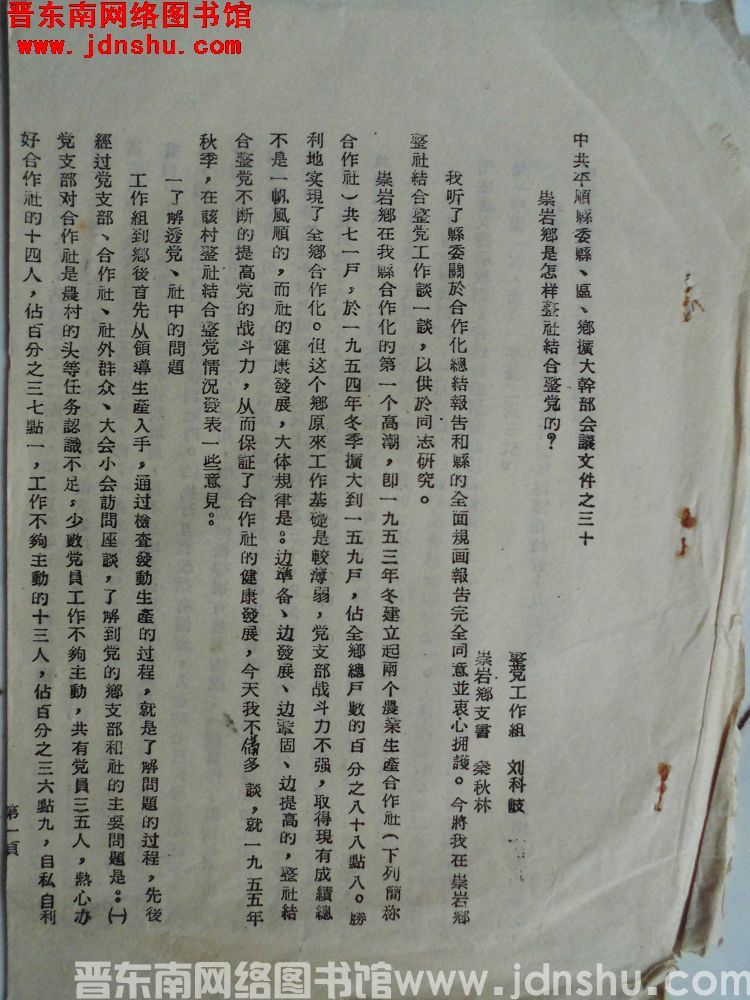 晋东南网络图书馆
www.jdnshu.com
中共平順縣委縣、區、鄉擴大幹部会議文件之三十
崇岩鄉是怎样整社結合整党的？
整党工作組 刘科岐
崇岩鄉支書 秦秋林
我听了縣委關於合作化總結報告和縣的全面規画報告完全同意並衷心拥護。今將我在崇岩鄉
整社結合整党工作談一談，以供於同志研究。
崇岩鄉在我縣合作化的第一个高潮，卽一九五三年冬建立起兩个農業生產合作社（下列簡称
合作社）共七一戸，於一九五四年冬季擴大到一五九戸，佔全鄉總戸数的百分之八十八點八。勝
利地实現了全鄉合作化。但这个鄉原來工作基礎是較薄弱，党支部战斗力不强，取得現有成績總
不是一帆風順的，而社的健康發展，大体規律是：边準备、边發展、边鞏固、边提高的，整社結
合整党不断的提高党的战斗力，从而保証了合作社的健康發展，今天我不備多談，就一九五五年
秋季，在該村整社結合整党情況發表一些意見：
一了解透党、社中的問題
工作組到鄉後首先从領導生產入手，通过檢查發動生產的过程，就是了解問題的过程，先後
經过党支部、合作社、社外群众、大会小会訪問座談，了解到党的鄉支部和社的主要問題是：㈠
党支部对合作社是農村的头等任务認識不足，少数党員工作不夠主動，共有党員三五人，熱心办
好合作社的十四人，佔百分之三七點一，工作不夠主動的十三人，佔百分之三六點九，自私自利
第一頁
晋东南网络图书馆www.jdnshu.com